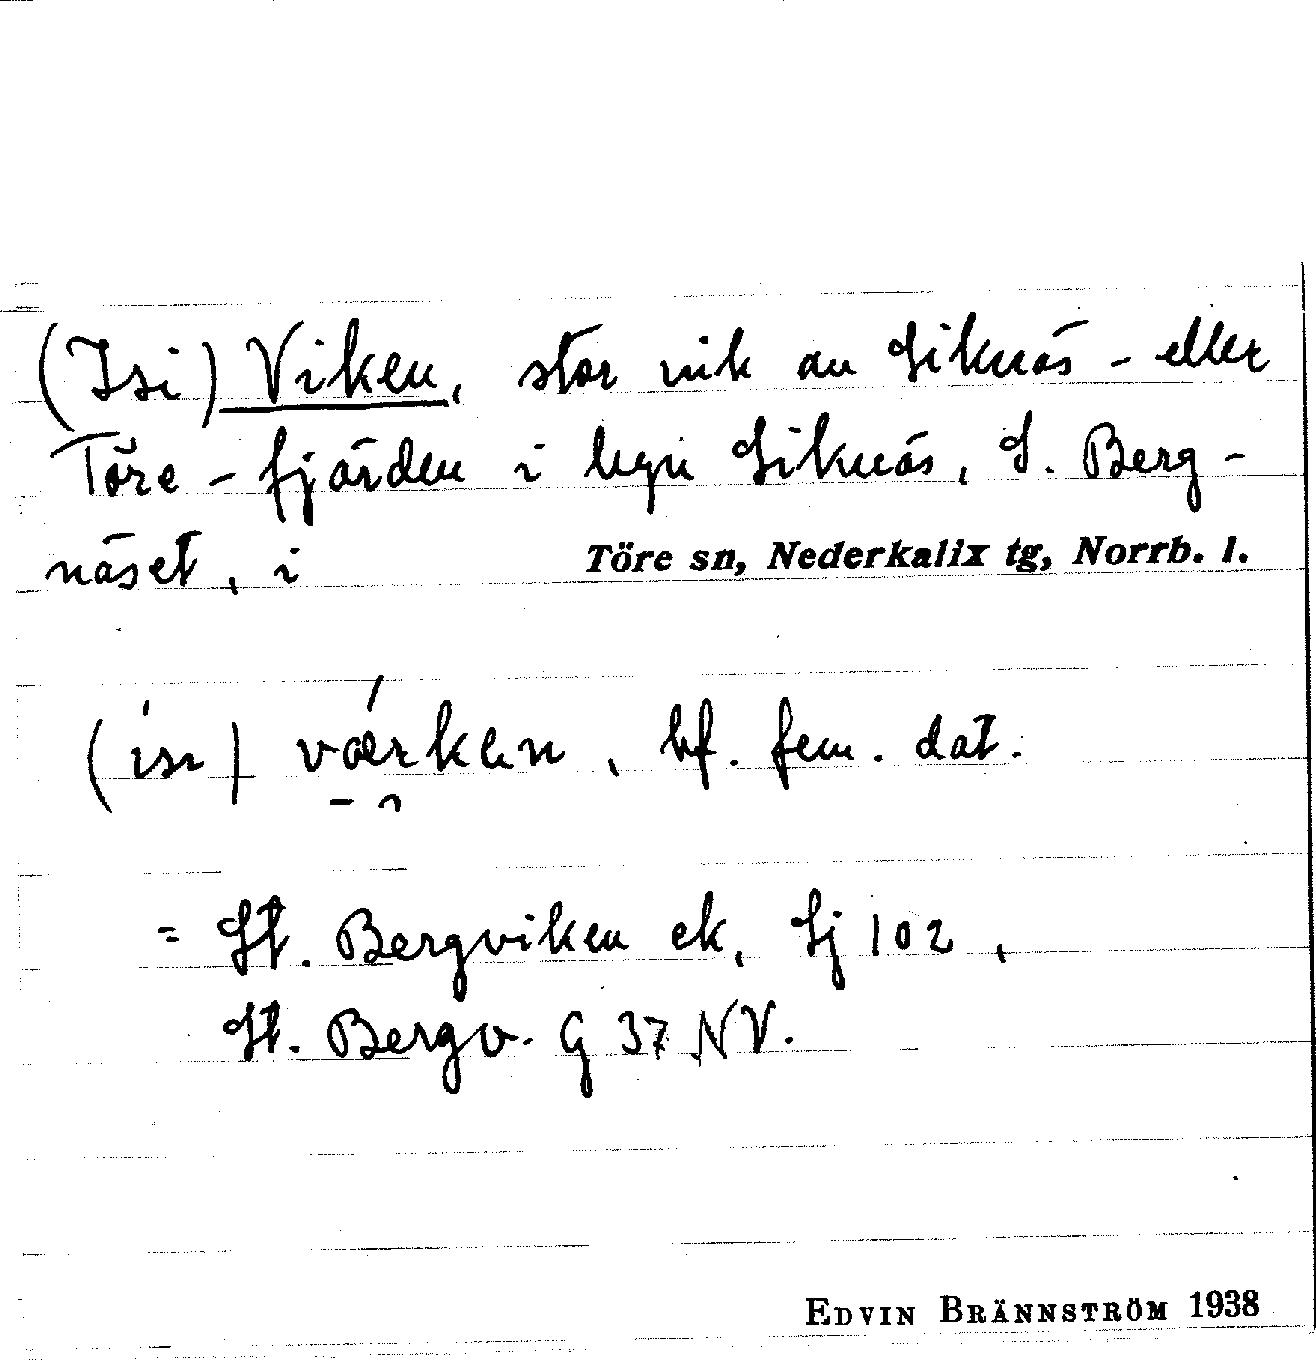 (Isi) Viken, stor vik av Siknäs- eller
Töre-fjärden i byn Siknäs, S. Berg-
näset, i Töre sn, Nederkalix tg, Norrb. l.
(isi)værken, bf. fem. dat.
= St. Bergviken ek, Sj 102,
St. Bergv. G 37 NV.
EDVIN BRÄNNSTRÖM 1938